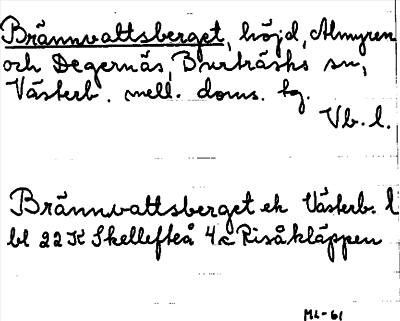 Brännvattsberget, höjd, Almyren
och Degernäs, Burträsks sn,
Västerb. mell. doms. hg.
Vb. l.
Brännvattsberget ek Västerb. l
bl 22 K Skellefteå 4c Risåkläppen
ML-61